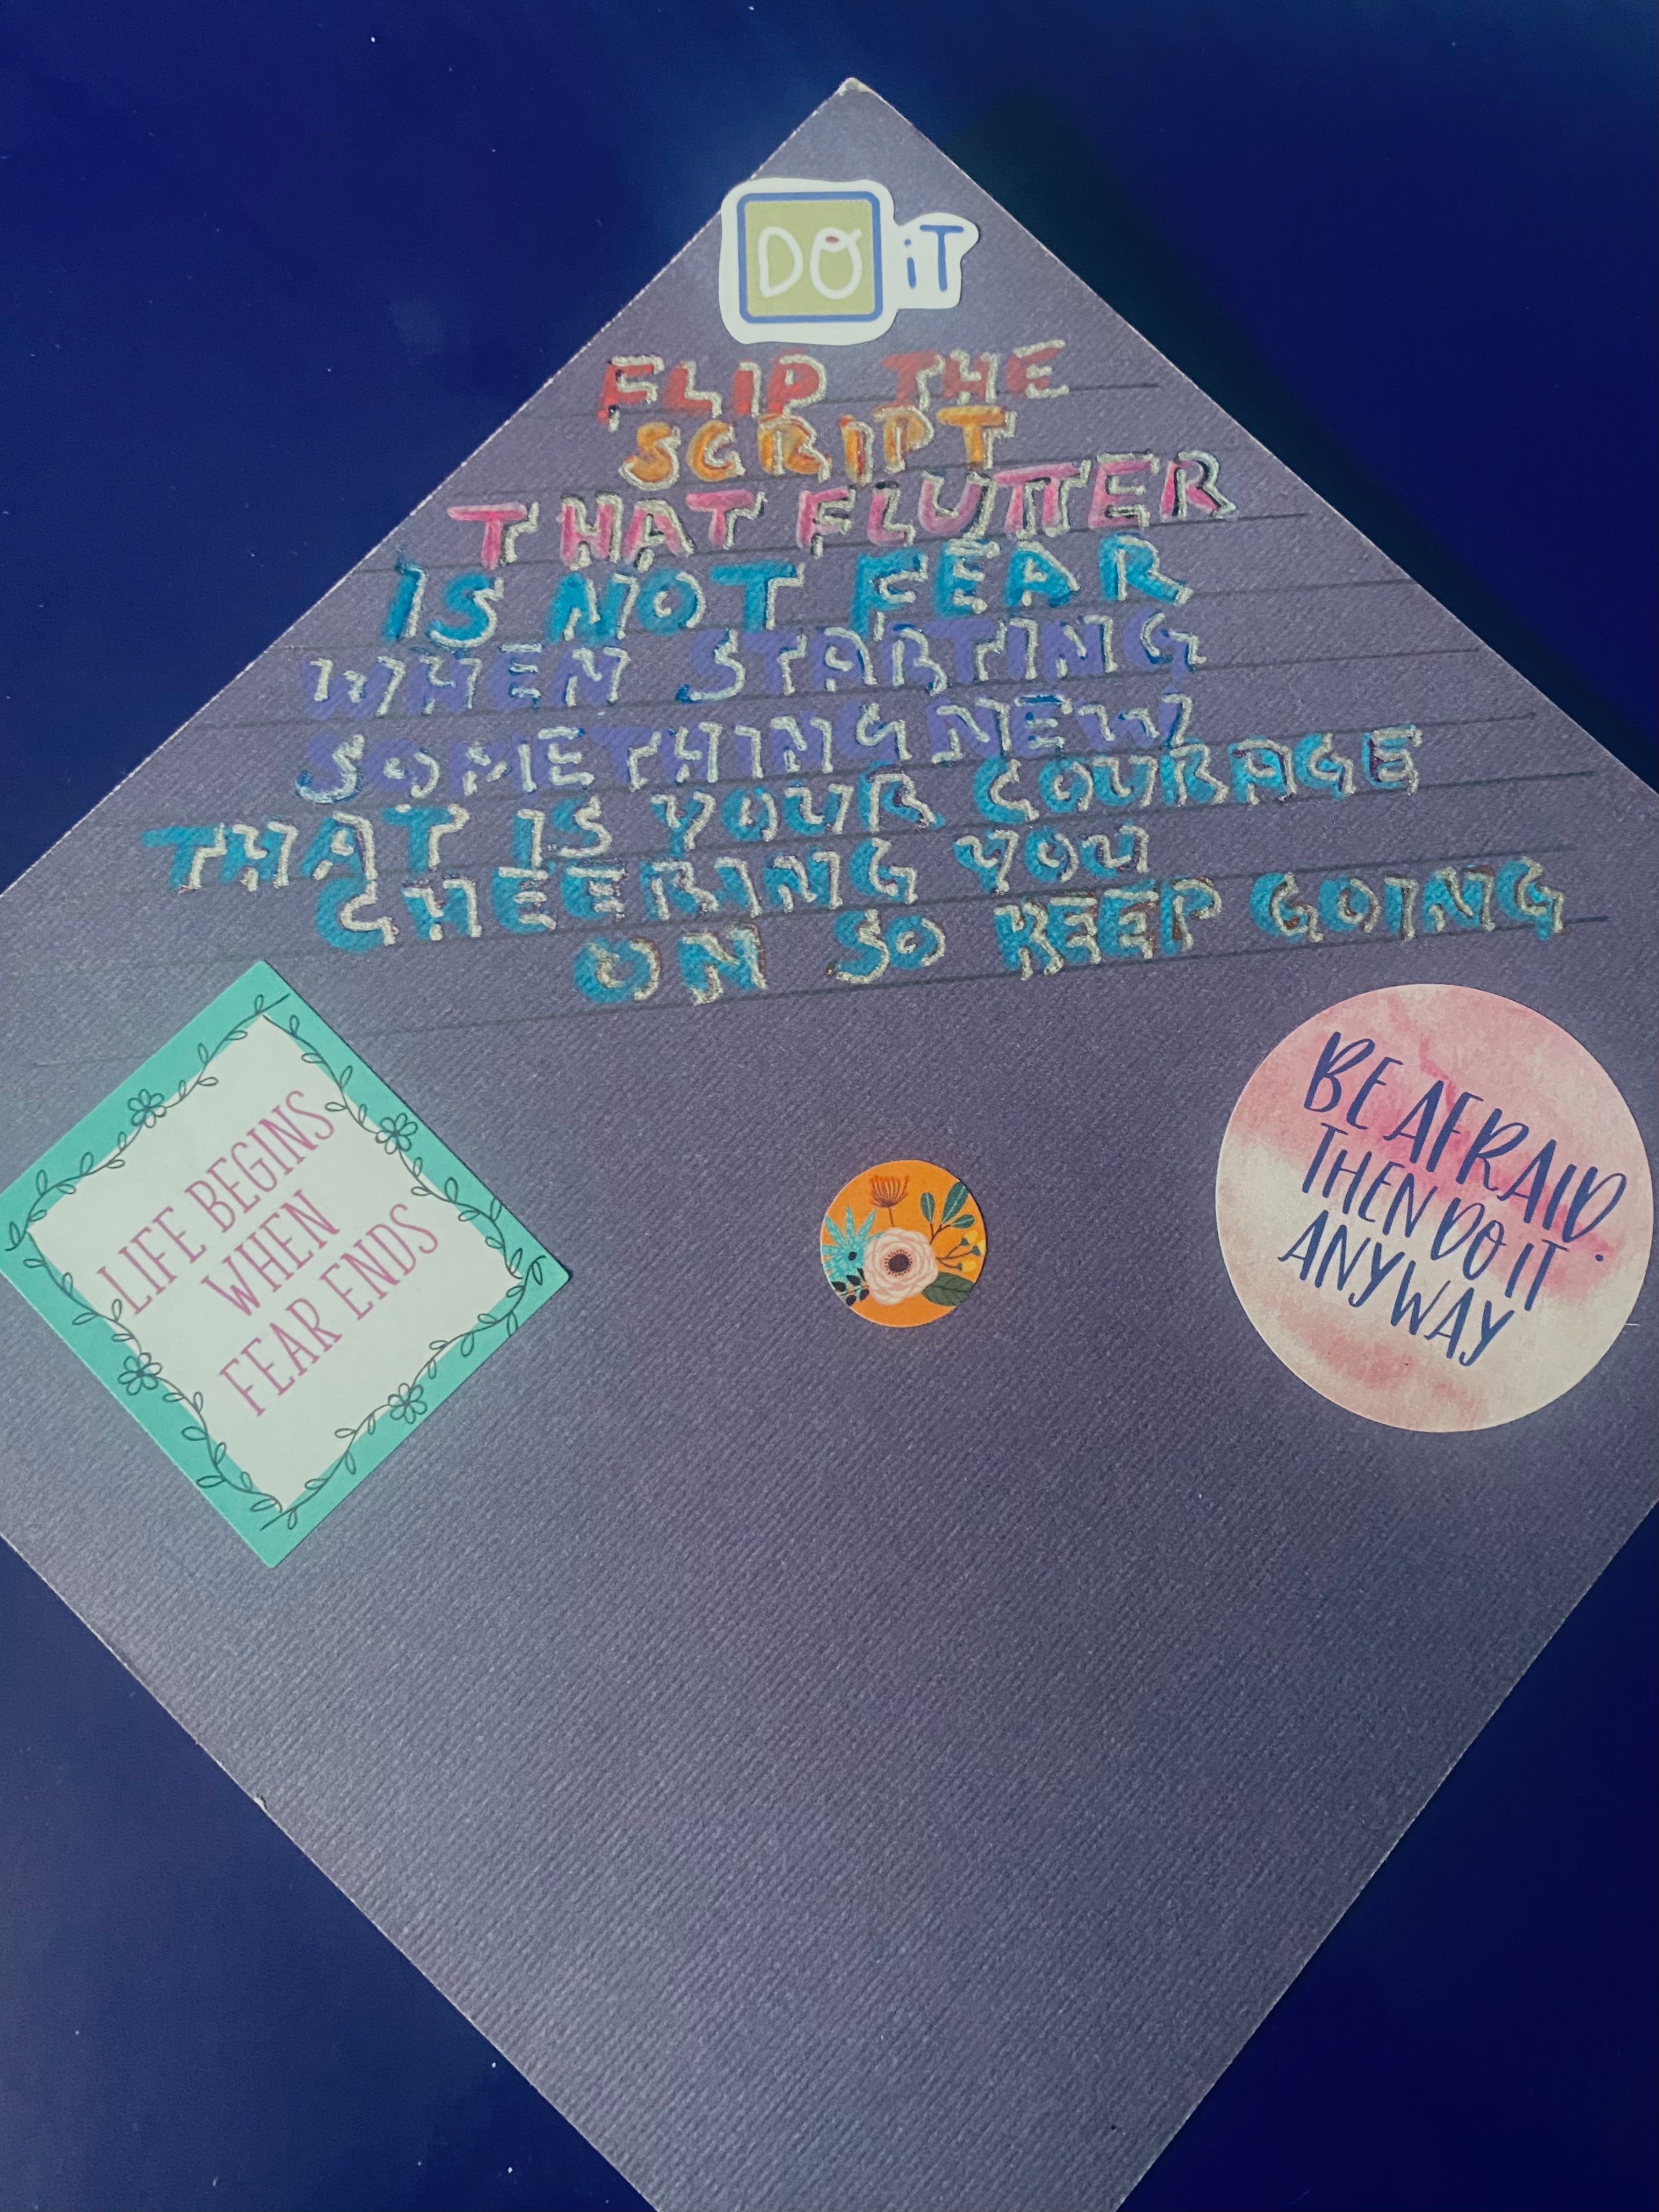 DO iT
FLIP THE
SCRIPT
THAT FLUTTER
IS NOT FEAR
WHEN STARTING
SOMETHING NEW
THAT IS YOUR COURAGE
CHEERING YOU
ON SO KEEP GOING
LIFE BEGINS
WHEN
FEAR ENDS
BE AFRAID.
THEN DO IT
ANYWAY